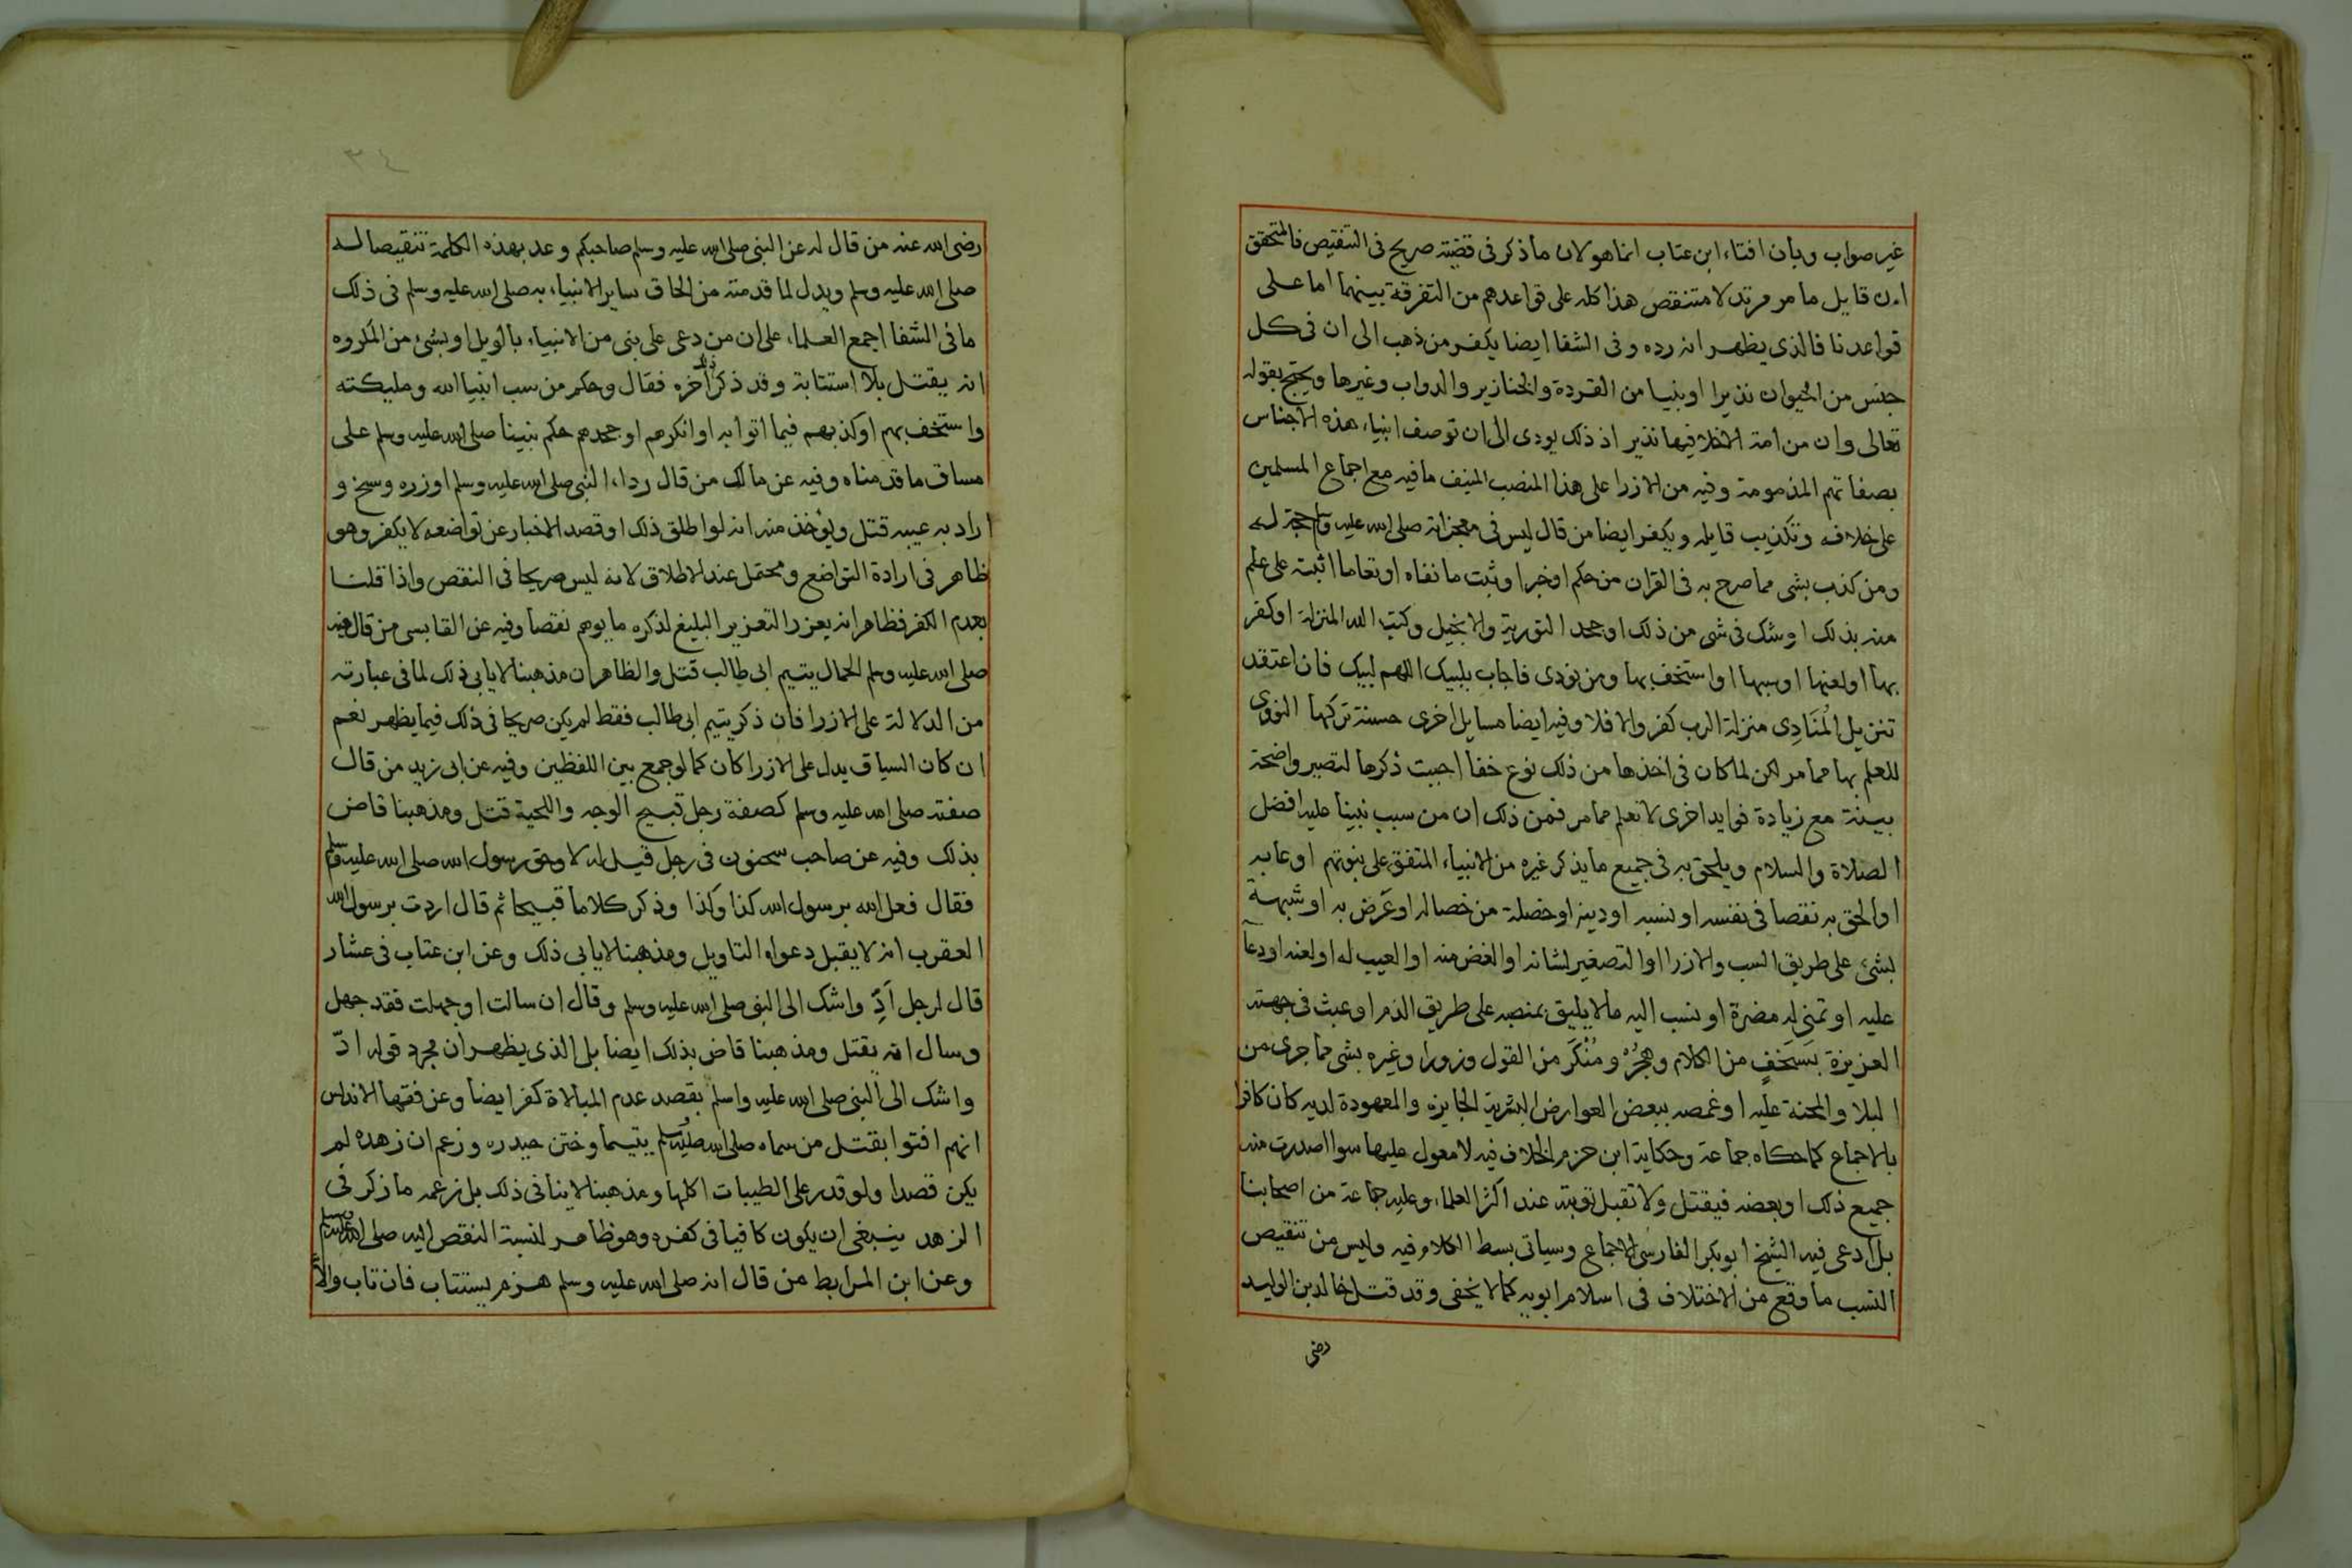 غير صواب وبأن افتاء ابن عتاب انما هو لان ما ذكر في قضيته صريح في التنقيص فالمتحقق
ان قايل ما مر مرتد لا متنقص هذا كله على قواعدهم من التفرقة بينهما اما على
قواعدنا فالذى يظهر انه رده وفى الشفا ايضا يكفر من ذهب الى ان فى كل
جنس من الحيوان نذيرا او نبيا من القردة والخنازير والدواب وغيرها ويحتج بقوله
تعالى وان من امة الا خلا فيها نذير اذ ذلك يودى الى ان توصف انبياء هذه الاجناس
بصفاتهم المذمومة وفيه من الازرا على هذا المنصب المنيف ما فيه مع اجماع المسلمين
على خلافه وتكذيب قايله ويكفر ايضا من قال ليس فى معجزاته صلى الله عليه وسلم حجة له
ومن كذب بشى مما صرح به فى القران من حكم او خبر او ثبت ما نفاه او نفا ما اثبته على علم
منه بذلك او شك فى شى من ذلك او جحد التورية والانجيل وكتب الله المنزلة او كفر
بها او لعنها او سبها او استخف بها ومن نودى فاجاب بلبيك اللهم لبيك فان اعتقد
تنزيل المُنَادِى منزلة الرب كفر والا فلا وفيه ايضا مسايل اخرى حسنة تركها النووى
للعلم بها مما مر لكن لما كان فى اخذها من ذلك نوع خفا احببت ذكرها لتصير واضحة
بينة مع زيادة فوايد اخرى لا تعلم مما مر فمن ذلك ان من سب نبينا عليه افضل
الصلاة والسلام ويلحق به فى جميع ما يذكر غيره من الانبياء المتفق على نبوتهم او عابه
او الحق به نقصا فى نفسه او نسبه او دينه او خصلة من خصاله او عَرّض به او شبهه
بشئ على طريق السب والازرا او التصغير لشانه او الغض منه او العيب له او لعنه او دعا
عليه او تمنى له مضرة او نسب اليه ما لا يليق بمنصبه على طريق الذم او عبث فى جهته
العزيزة بسَخَفٍ من الكلام وهُجْرٍ ومُنْكَر من القول وزورا وغيره بشى مما جرى من
البلا والمحنة عليه او غمصه ببعض العوارض البشرية الجايزه والمعهودة لديه كان كافرا
بالاجماع كما حكاه جماعة وحكاية ابن حزم الخلاف فيه لا معول عليها سوا اصدرت منه
جميع ذلك او بعضه فيقتل ولا تقبل توبته عند اكثر العلماء وعليه جماعة من اصحابنا
بل ادعى فيه الشيخ ابو بكر الفارسى الاجماع وسياتى بسط الكلام فيه وليس من تنقيص
النسب ما وقع من الاختلاف فى اسلام ابويه كما لا يخفى وقد قتل خالد بن الوليد
رضى
٣٤
رضى الله عنه من قال له عن النبى صلى الله عليه وسلم صاحبكم وعد بهذه الكلمة تنقيصا له
صلى الله عليه وسلم ويدل لما قدمته من الحاق ساير الانبياء به صلى الله عليه وسلم فى ذلك
ما فى الشفا اجمع العلماء على ان من دعى على نبى من الانبياء بالويل او بشئ من المكروه
انه يقتل بلا استتابة وقد ذكر ذلك اخره فقال وحكم من سب انبيا الله ومليكته
واستخف بهم او كذبهم فيما اتوا به او انكرهم او جحدهم حكم نبينا صلى الله عليه وسلم على
مساق ما قدمناه وفيه عن مالك من قال رداء النبى صلى الله عليه وسلم او زره وسخ و
اراد به عيبه قتل ويؤخذ منه انه لو اطلق ذلك او قصد الاخبار عن تواضعه لا يكفر وهو
ظاهر فى ارادة التواضع ومحتمل عند الاطلاق لانه ليس صريحا فى النقص واذا قلنا
بعدم الكفر فظاهر انه يعزر التعزير البليغ لذكره ما يوهم نقصا وفيه عن القابسى من قال فيه
صلى الله عليه وسلم الحمال يتيم ابى طالب قتل والظاهر ان مذهبنا لا يابى ذلك لما فى عبارته
من الدلالة على الازرا فان ذكر يتيم ابى طالب فقط لم يكن صريحا فى ذلك فيما يظهر نعم
ان كان السياق يدل على الازرا كان كما لو جمع بين اللفظين وفيه عن ابى زيد من قال
صفته صلى الله عليه وسلم كصفة رجل قبيح الوجه واللحية قتل ومذهبنا قاض
بذلك وفيه عن صاحب سحنون فى رجل قيل له لا وحق رسول الله صلى الله عليه وسلم
فقال فعل الله برسول الله كذا وكذا وذكر كلاما قبيحا ثم قال اردت برسول الله
العقرب انه لا يقبل دعواه التاويل ومذهبنا لا يابى ذلك وعن ابن عتاب فى عشار
قال لرجل اَدِّ واشك الى النبى صلى الله عليه وسلم وقال ان سالت او جهلت فقد جهل
وسال انه يقتل ومذهبنا قاض بذلك ايضا بل الذى يظهر ان مجرد قوله ادّ
واشك الى النبى صلى الله عليه واسلم بقصد عدم المبالاة كفر ايضا وعن فقها الاندلس
انهم افتوا بقتل من سماه صلى الله عليه وسلم يتيما وختن حيدره وزعم ان زهده لم
يكن قصدا ولو قدر على الطيبات اكلها ومذهبنا لا ينافى ذلك بل زعمه ما ذكر فى
الزهد ينبغى ان يكون كافيا فى كفره وهو ظاهر لنسبة النقص اليه صلى الله عليه وسلم
وعن ابن المرابط من قال انه صلى الله عليه وسلم هزم يستتاب فان تاب والا